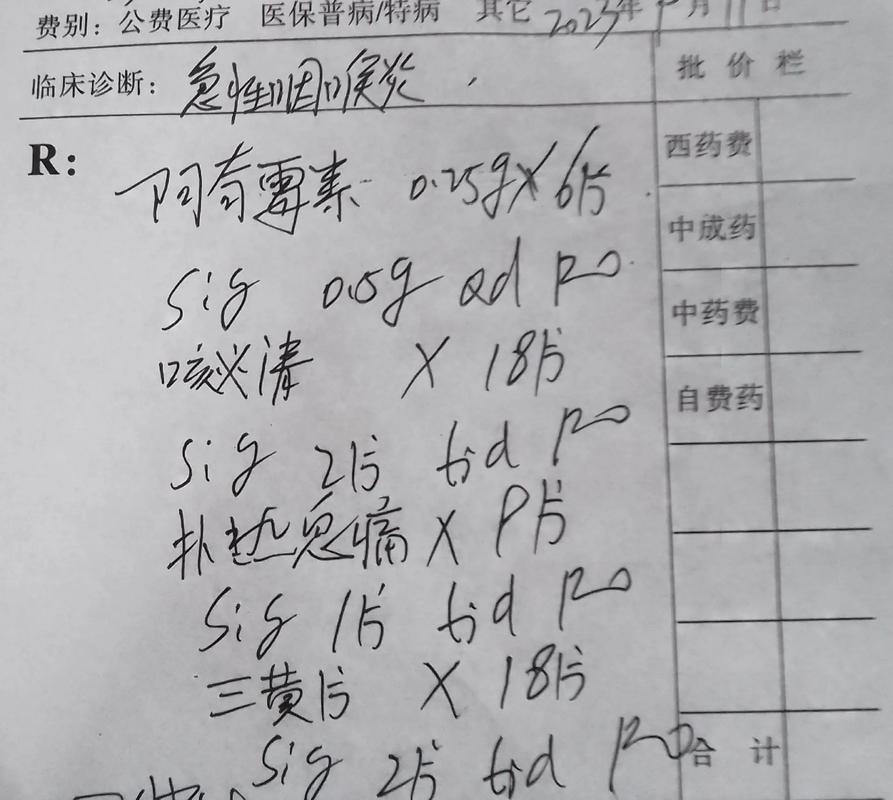 费别：公费医疗 医保普病/特病 其它 2023年9月11日
临床诊断：急性咽喉炎
批价栏
R：
阿奇霉素 0.25g×6片
西药费
Sig 0.5g qd po
中成药
咳必清 × 18片
中药费
Sig 2片 tid po
自费药
扑热息痛 × 9片
Sig 1片 tid po
三黄片 × 18片
Sig 2片 tid po
合计